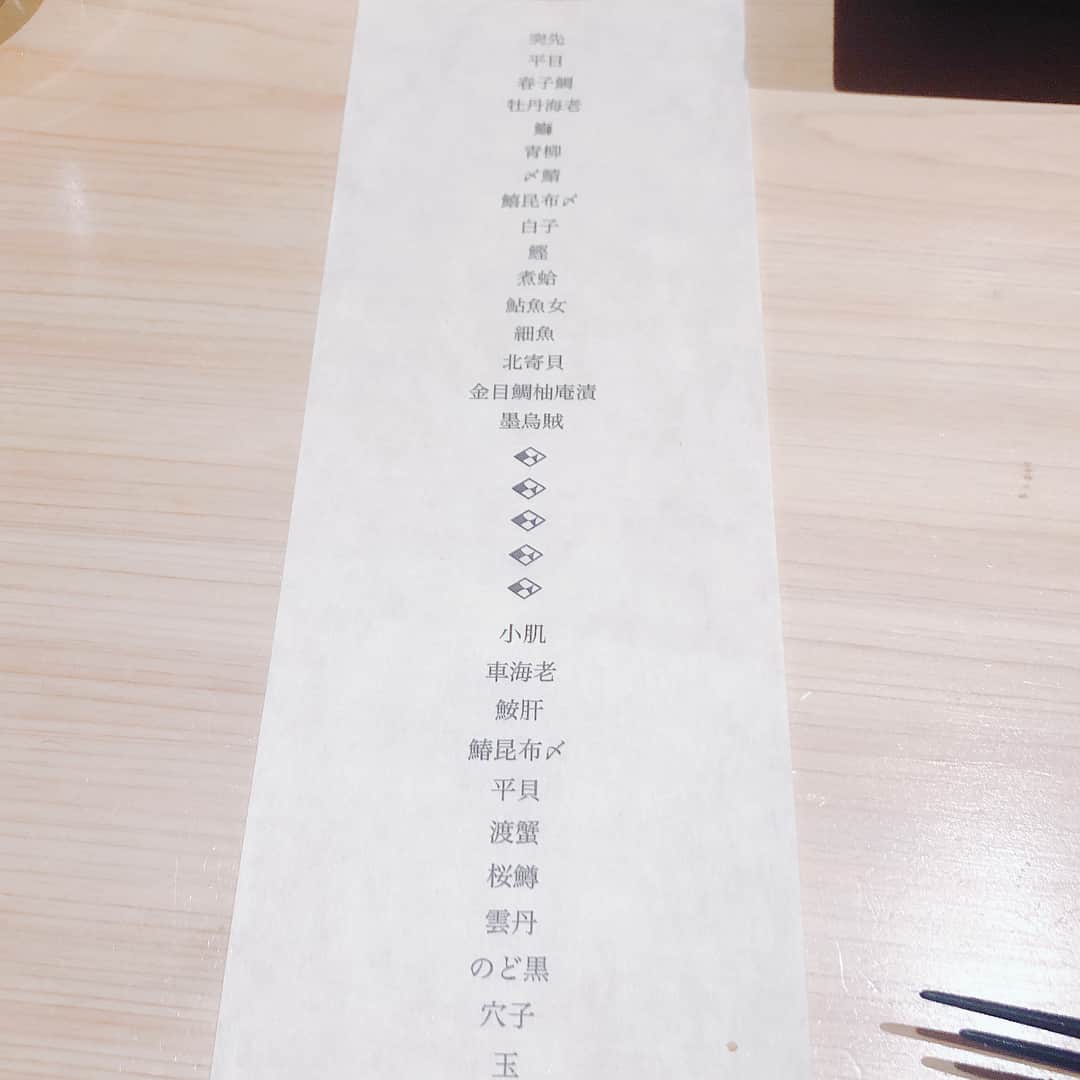 突先
平目
春子鯛
牡丹海老
鰤
青柳
〆鯖
鱚昆布〆
白子
鰹
煮蛤
鮎魚女
細魚
北寄貝
金目鯛柚庵漬
墨烏賊
小肌
車海老
鮟肝
鰆昆布〆
平貝
渡蟹
桜鱒
雲丹
のど黒
穴子
玉